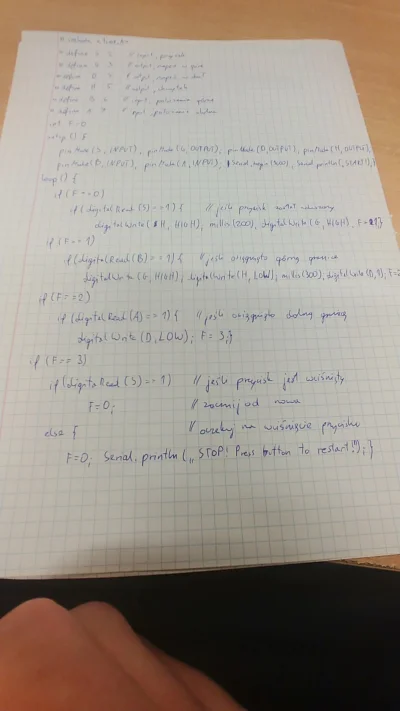 # define S 2 // input, przycisk
# define G 3 // output, w górę
# define D 4 // output, w dół
# define H 5 // output,
# define B 6 // input, górne
# define A 7 // input, dolne
int F=0
setup() {
pinMode(S, INPUT), pinMode(G, OUTPUT), pinMode(D, OUTPUT), pinMode(H, OUTPUT),
pinMode(B, INPUT), pinMode(A, INPUT), Serial.begin(9600), Serial.println(„START");}
loop() {
if (F==0)
if (digitalRead(S)==1) { // jeśli przycisk został wciśnięty
digitalWrite(H, HIGH); millis(200); digitalWrite(G, HIGH), F=1}
if (F==1)
if (digitalRead(B)==1) { // jeśli osiągnięto górną granicę
digitalWrite(G, HIGH); digitalWrite(H, LOW); millis(300); digitalWrite(D, 1), F=2
if (F==2)
if (digitalRead(A)==1) { // jeśli osiągnięto dolną granicę
digitalWrite(D, LOW); F=3;}
if (F==3)
if (digitalRead(S)==1) // jeśli przycisk jest wciśnięty
F=0; // zacznij od nowa
else { // oczekuj na wciśnięcie przycisku
F=0; Serial.println(„STOP! Press button to restart!"); }